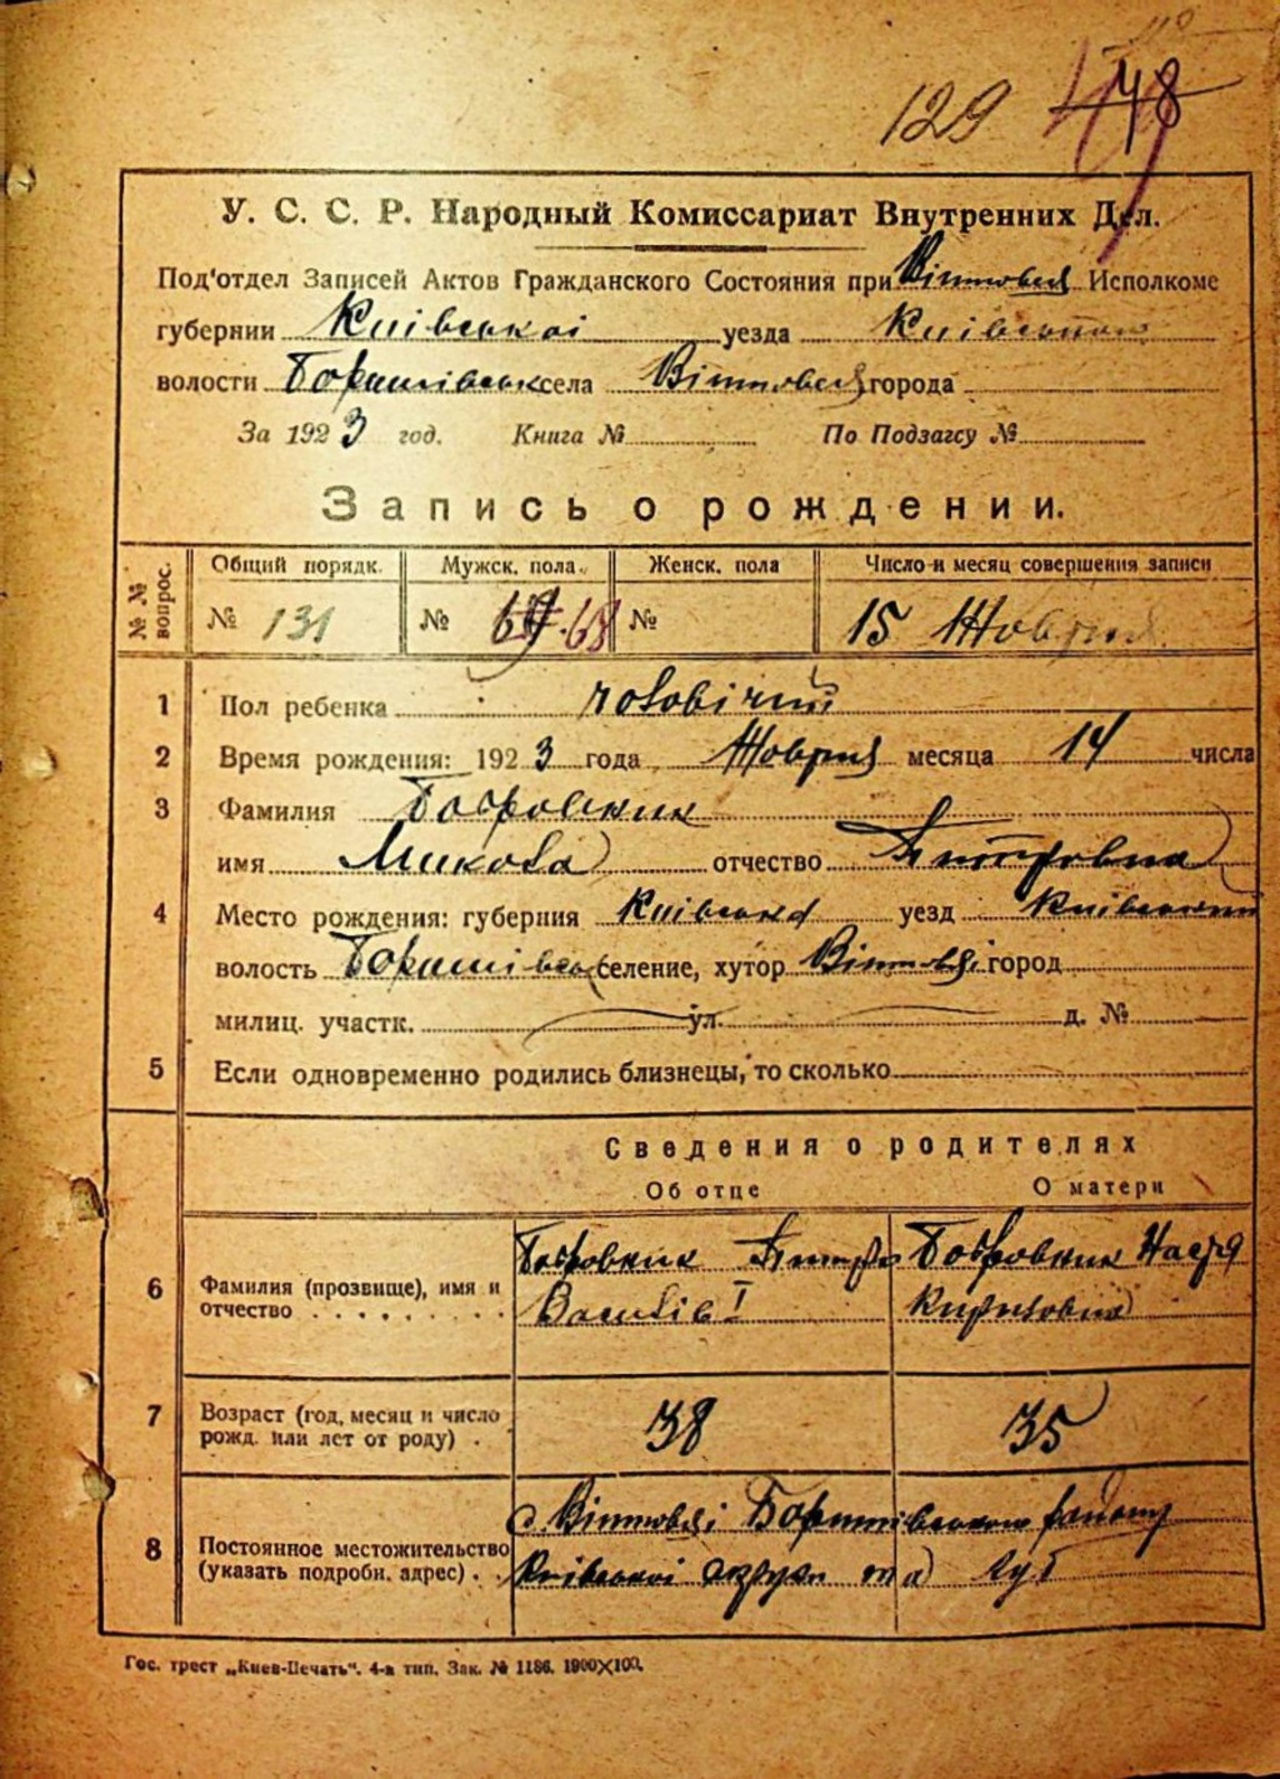 129 48
У. С. С. Р. Народный Комиссариат Внутренних Дел.
Под'отдел Записей Актов Гражданского Состояния при Исполкоме
губернии Київської уезда Київського
волости села города
За 1923 год. Книга № По Подзагсу №
Запись о рождении.
№№ вопрос. Общий порядк. Мужск. пола. Женск. пола Число и месяц совершения записи
№ 131 № 68 № 15 Жовтня
1 Пол ребенка чоловічий
2 Время рождения: 1923 года Жовтня месяца 14 числа
3 Фамилия Бобровник
имя Микола отчество
4 Место рождения: губерния Київська уезд Київський
волость селение, хутор город
милиц. участк. ул. д. №
5 Если одновременно родились близнецы, то сколько
Сведения о родителях
Об отце О матери
6 Фамилия (прозвище), имя и отчество
Бобровник Петро Бобровник Настя
Василів І Кириловна
7 Возраст (год, месяц и число рожд. или лет от роду) . 38 35
8 Постоянное местожительство (указать подробн. адрес) . .
с. району
Київської округи та губ
Гос. трест „Киев-Печать“. 4-я тип. Зак. № 1186. 1900×100.